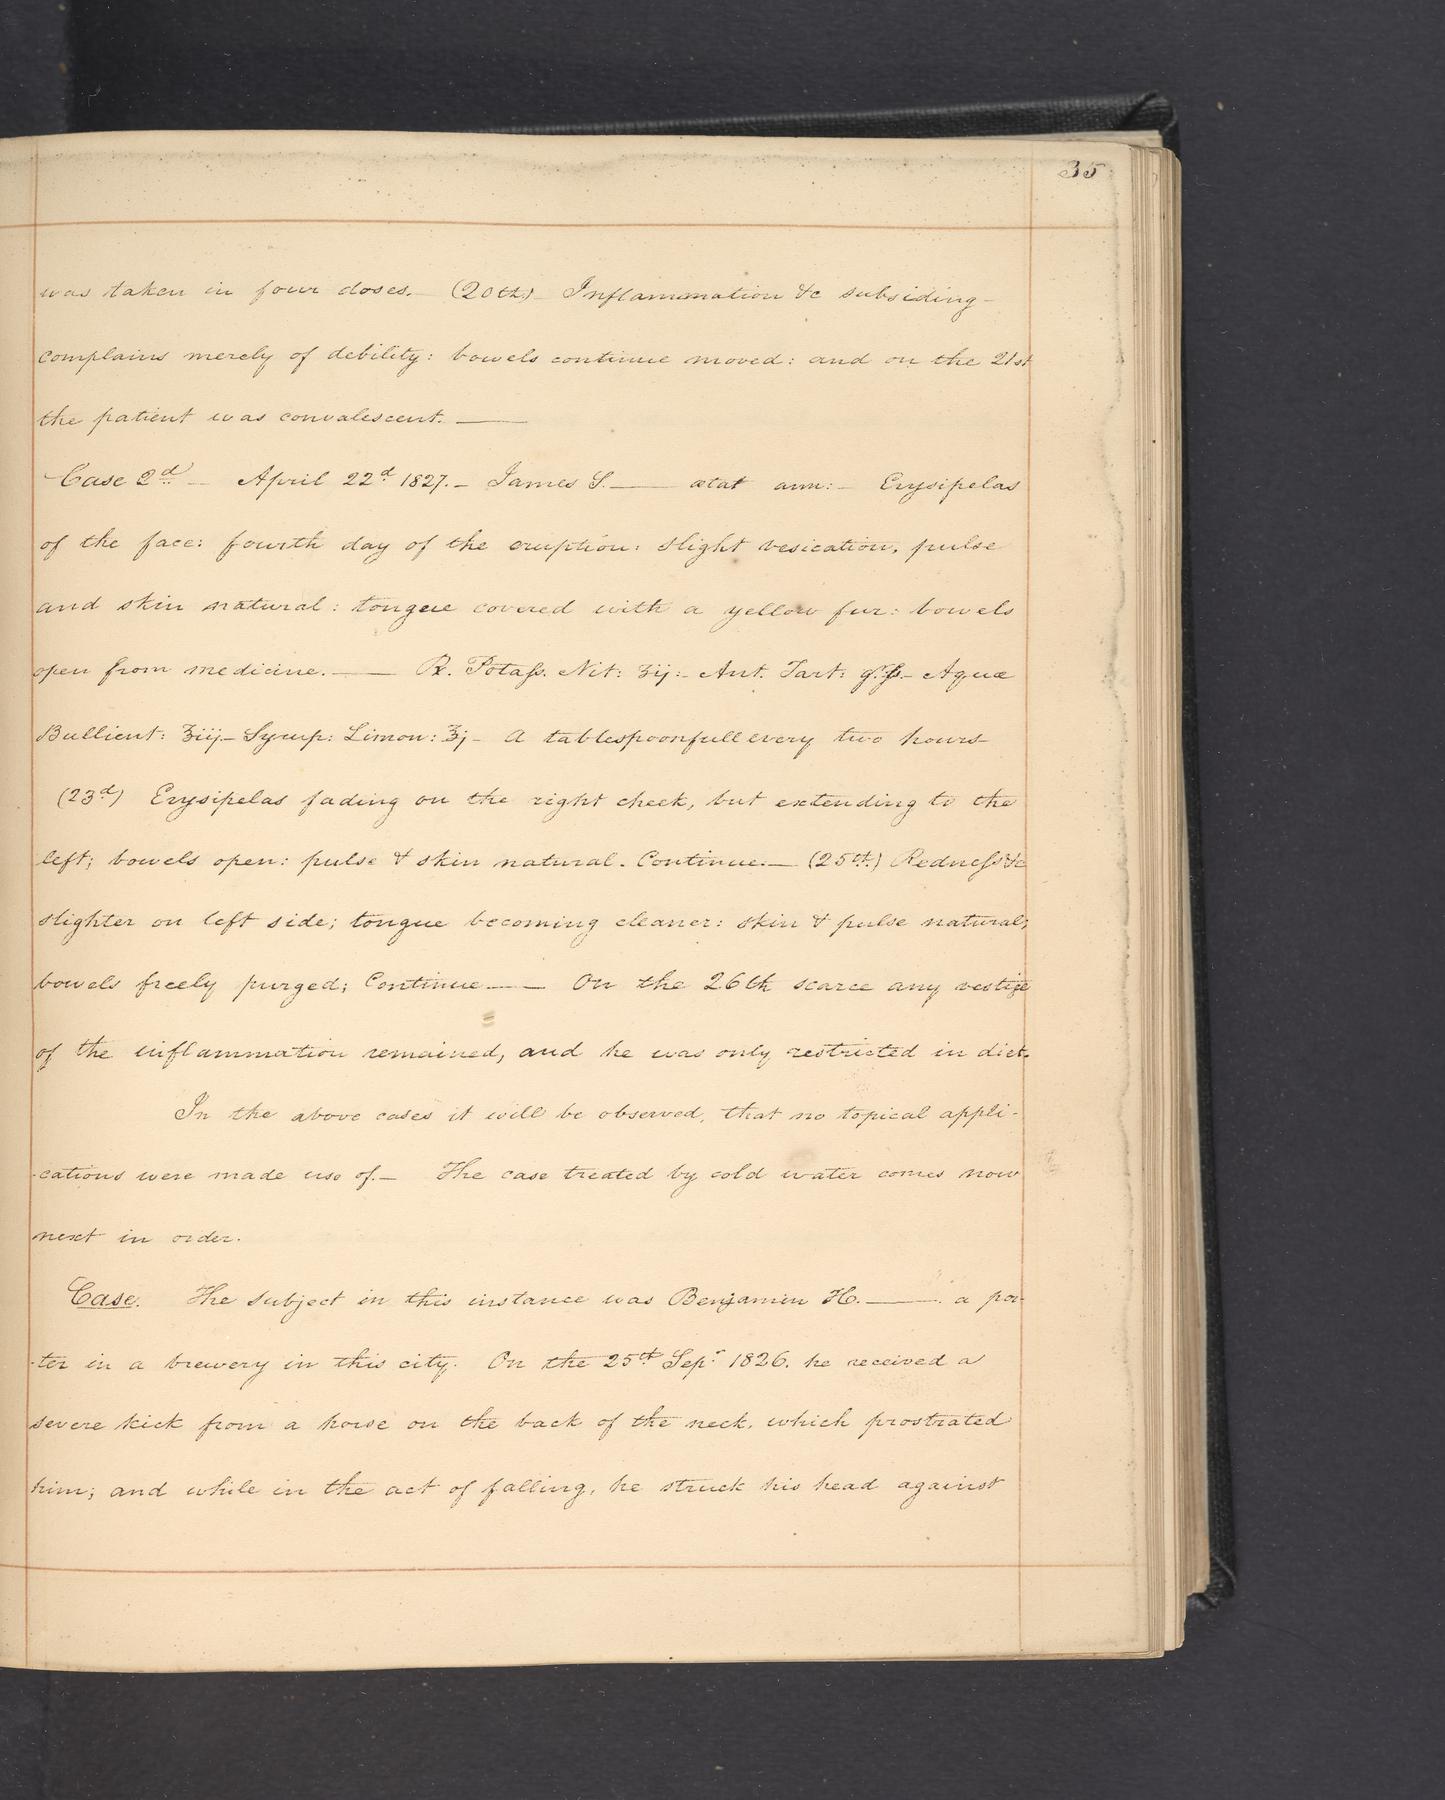 35
was taken in four doses. — (20th) — Inflammation &c subsiding —
complains merely of debility: bowels continue moved: and on the 21st
the patient was convalescent. ——
Case 2d — April 22d 1827. — James S. —— ætat ann: — Erysipelas
of the face: fourth day of the eruption: slight vesication, pulse
and skin natural: tongue covered with a yellow fur: bowels
open from medicine. —— Rx. Potaſs. Nit: ʒij: — Ant. Tart: gr.ſs. — Aquæ
Bullient: ℥iij — Syrup: Limon: ℥j — A tablespoonfull every two hours —
(23d) Erysipelas fading on the right cheek, but extending to the
left; bowels open: pulse & skin natural. Continue. — (25th) Redneſs &c
slighter on left side; tongue becoming cleaner: skin & pulse natural;
bowels freely purged; Continue —— On the 26th scarce any vestige
of the inflammation remained, and he was only restricted in diet.
In the above cases it will be observed, that no topical appli-
-cations were made use of. — The case treated by cold water comes now
next in order.
Case. The subject in this instance was Benjamin H. —— a por-
-ter in a brewery in this city. On the 25th Sepr 1826. he received a
severe kick from a horse on the back of the neck, which prostrated
him; and while in the act of falling, he struck his head against